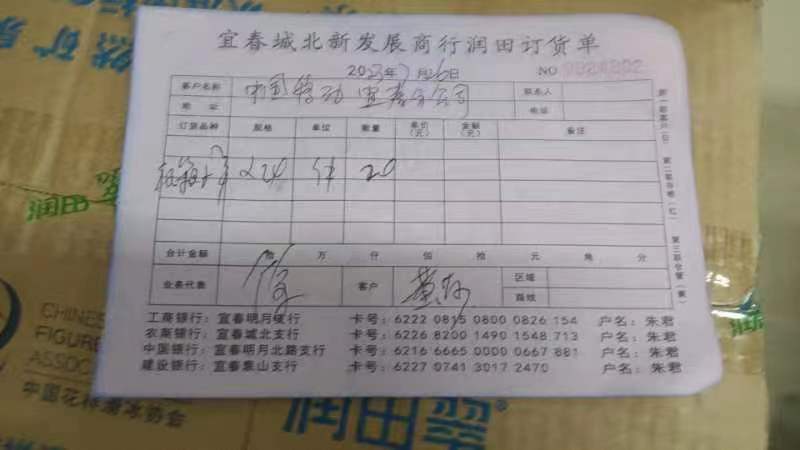 宜春城北新发展商行润田订货单
2023年7月26日 NO 0024802
客户名称 中国移动宜春分公司 联系人
地址 电话
订货品种 规格 单位 数量 单价(元) 金额(元) 备注
×24 件 20
合计金额 拾 万 仟 佰 拾 元 角 分
业务代表 客户 黄 区域
路线
工商银行：宜春明月支行 卡号：6222 0815 0800 0826 154 户名：朱君
农商银行：宜春城北支行 卡号：6226 8200 1490 1548 713 户名：朱君
中国银行：宜春明月北路支行 卡号：6216 6665 0000 0667 881 户名：朱君
建设银行：宜春象山支行 卡号：6227 0741 3017 2470 户名：朱君
然矿泉
润田翠
CHINESE
FIGURE
ASSOC
中国花样滑冰协会
润田翠